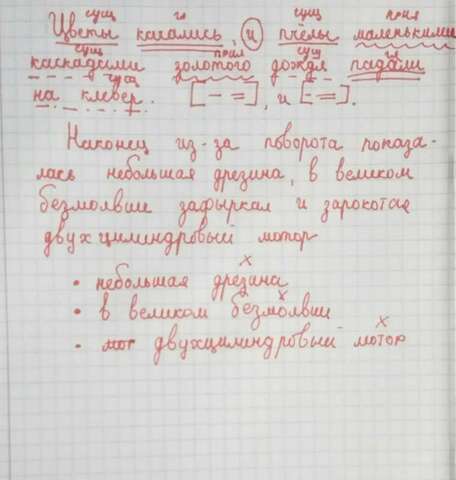 сущ гл сущ прил
Цветы качались, и пчёлы маленькими
сущ прил сущ гл
каскадами золотого дождя падали
сущ
на клевер. [- =], и [- =].
Наконец из-за поворота показа-
лась небольшая дрезина, в великом
безмолвии зафыркал и зарокотал
двухцилиндровый мотор
х
• небольшая дрезина
х
• в великом безмолвии
х
• мот двухцилиндровый мотор